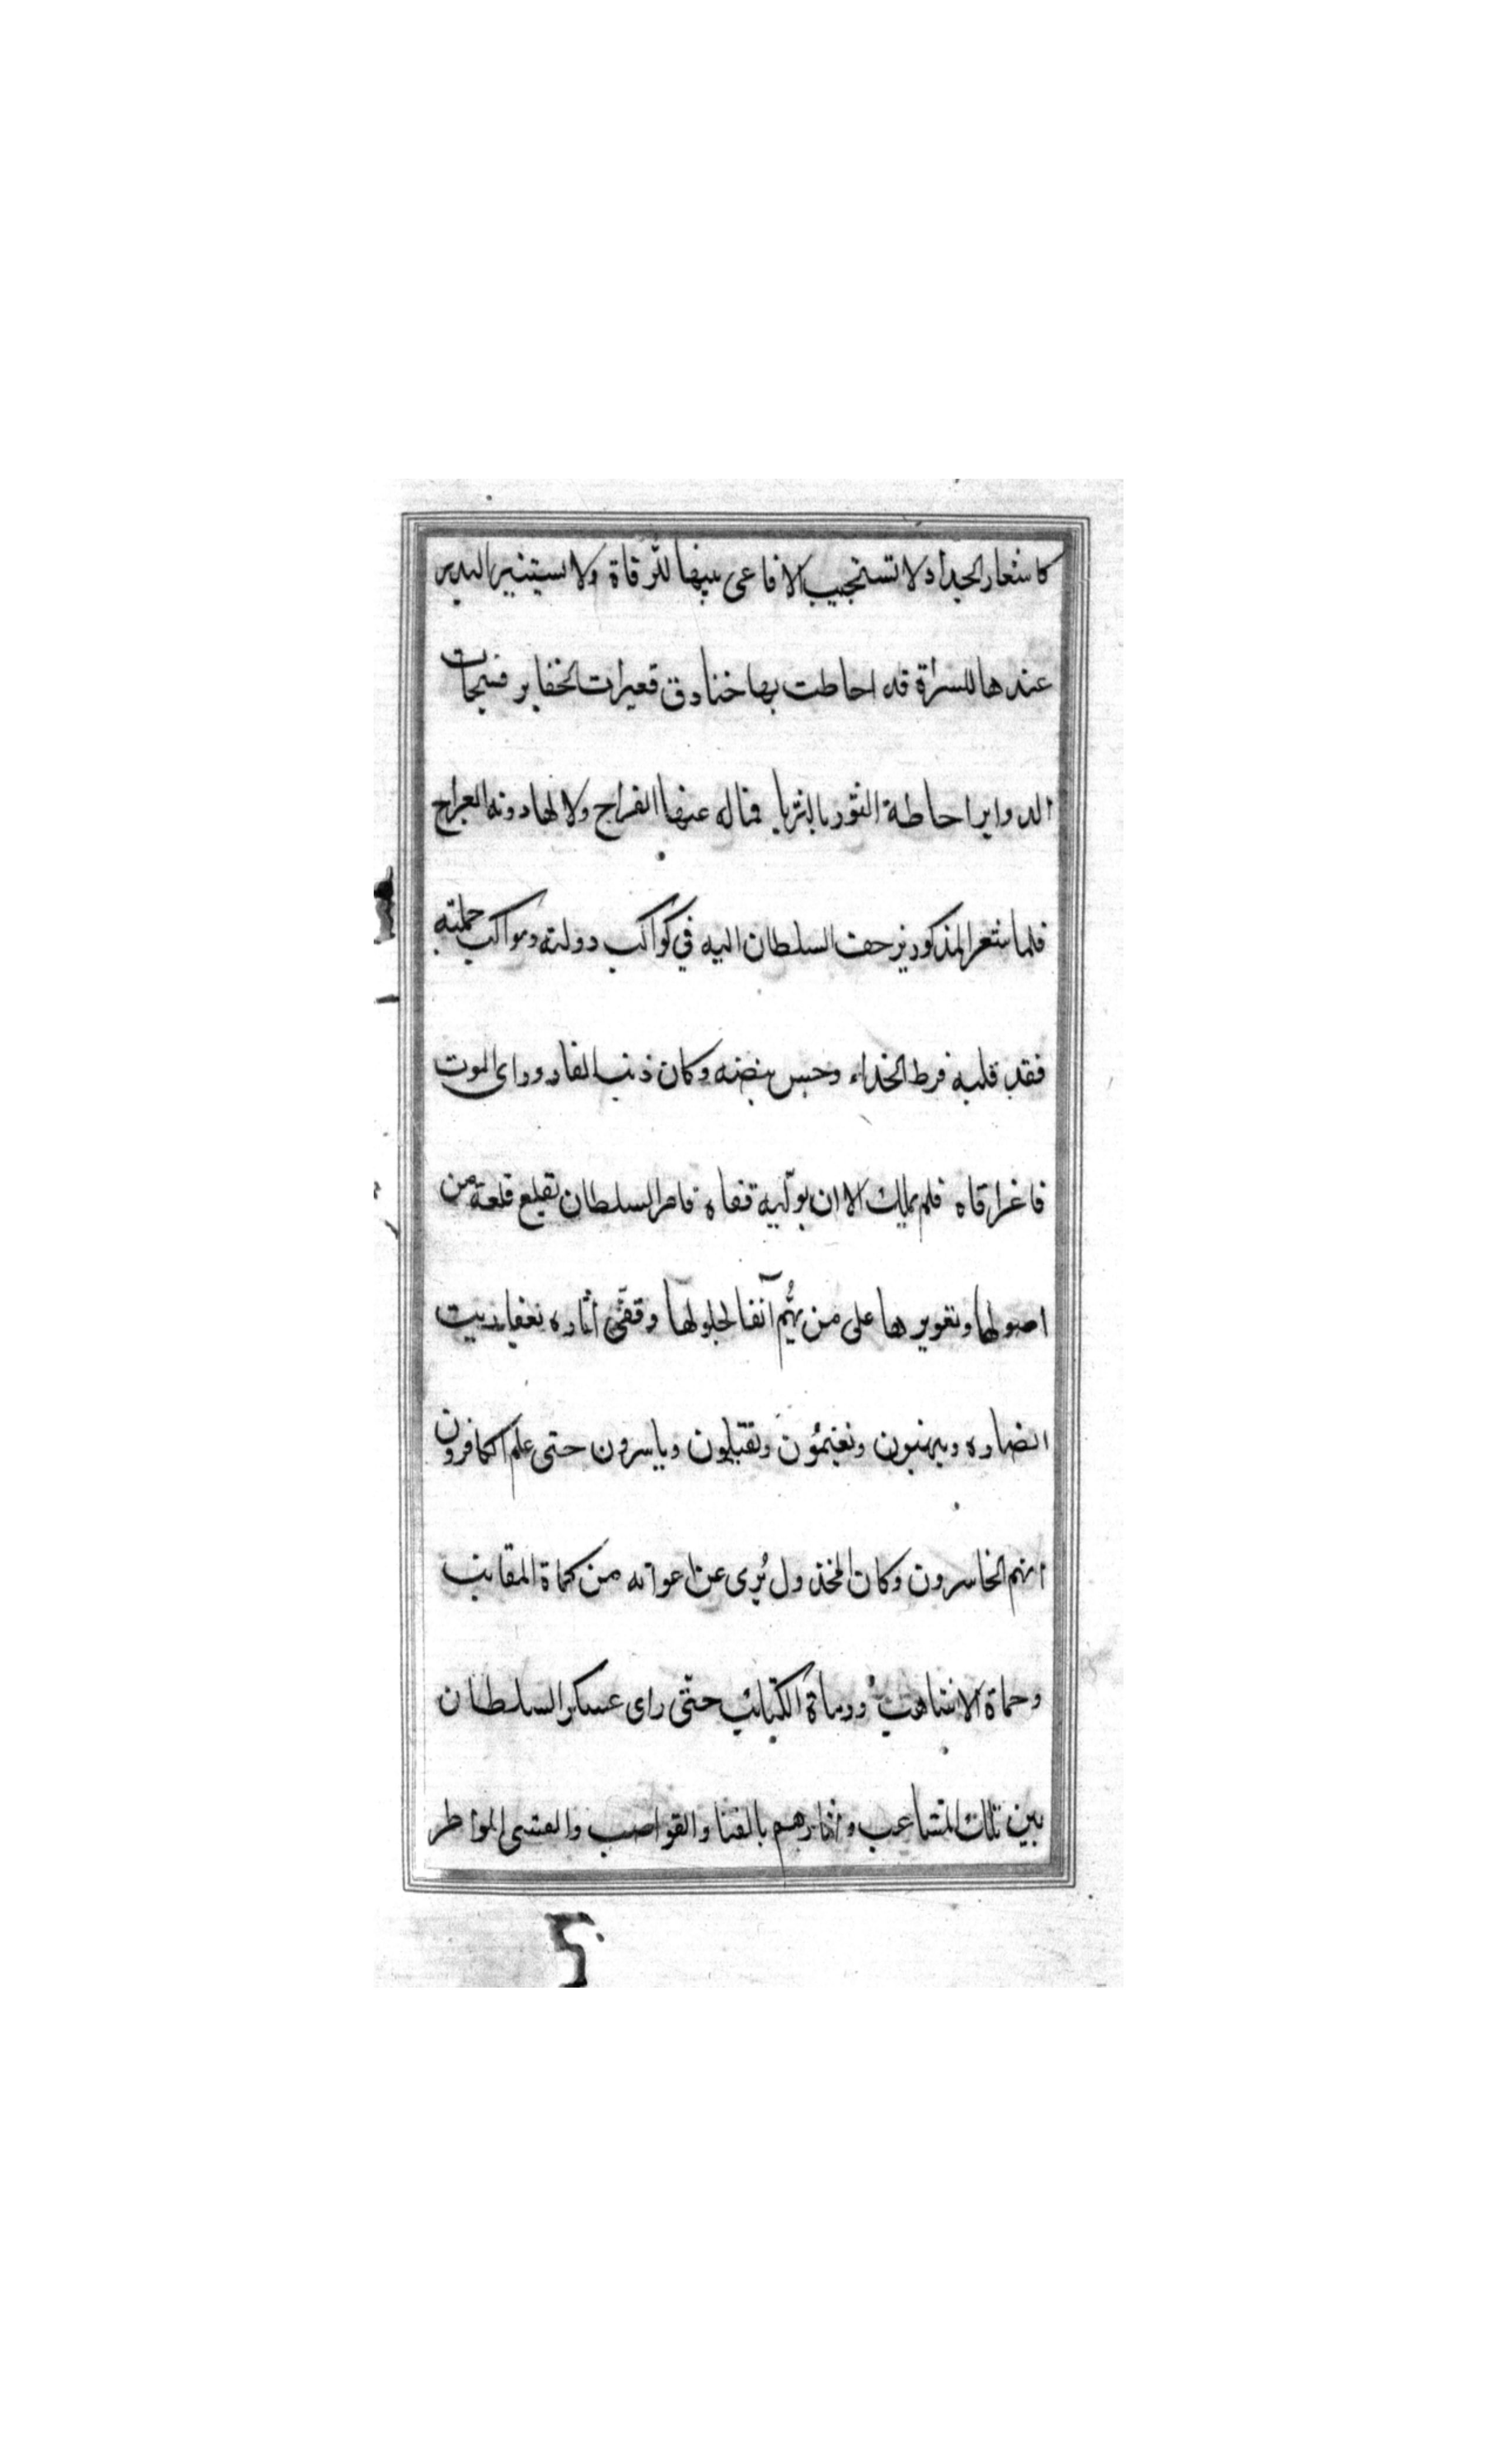 كاشعار الحداد لا تستجيب الافاعى بينها للرقاة ولا يستنير البدر
عندها للسراة قد احاطت بها خنادق قعيرات الحفاير فسيحات
الدواير احاطة الثور بالثريا فماله عنها انفراج ولا لها دونه انعراج
فلما شعر المذكور بزحف السلطان اليه في كواكب دولته ومواكب حملته
فقد قلبه فرط الخداء وحبس نبضه وكان ذنب الفار وراى الموت
فاغرا قاه فلم يملك الا ان يولّيه قفاه فامر السلطان بقلع قلعة من
اصولها وتغويرها على من يهُمّ آنفا لحلولها وقفّى اثاره بعفاريت
انصاره وينهبون ويغنمون ويقتلون وياسرون حتى علم الكافرون
انهم الخاسرون وكان المخذول يُرى عن اعوانه من كماة المقانب
وحماة الاشاهب ورماة الكتائب حتى راى عسكر السلطان
بين تلك المشاعب واثارهم بالقنا والقواضب والقسى المواطر
5